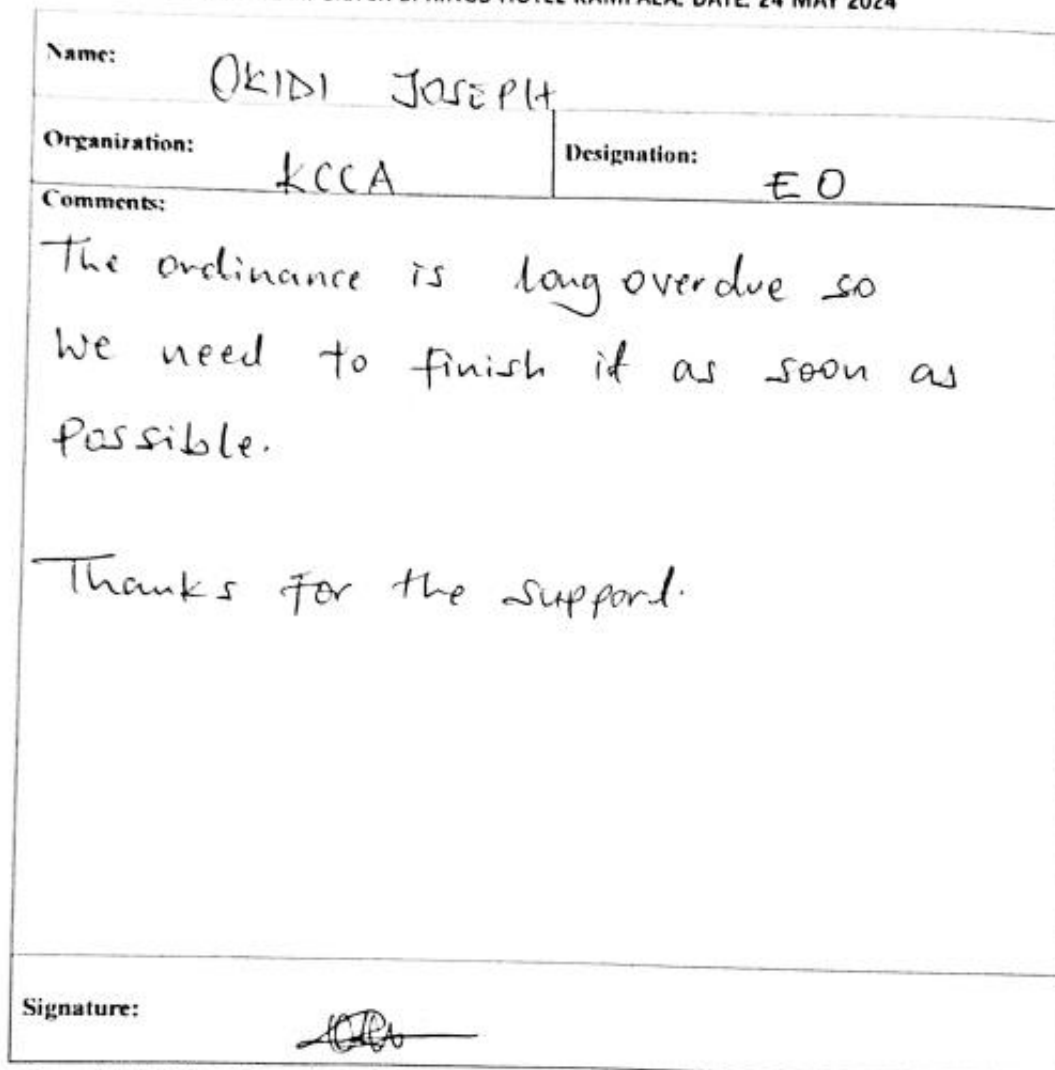 SPRINGS HOTEL KAMPALA. DATE: 24 MAY 2024
Name: OKIDI JOSEPH
Organization: KCCA Designation: EO
Comments:
The ordinance is long overdue so
We need to finish it as soon as
Possible.
Thanks for the support.
Signature: